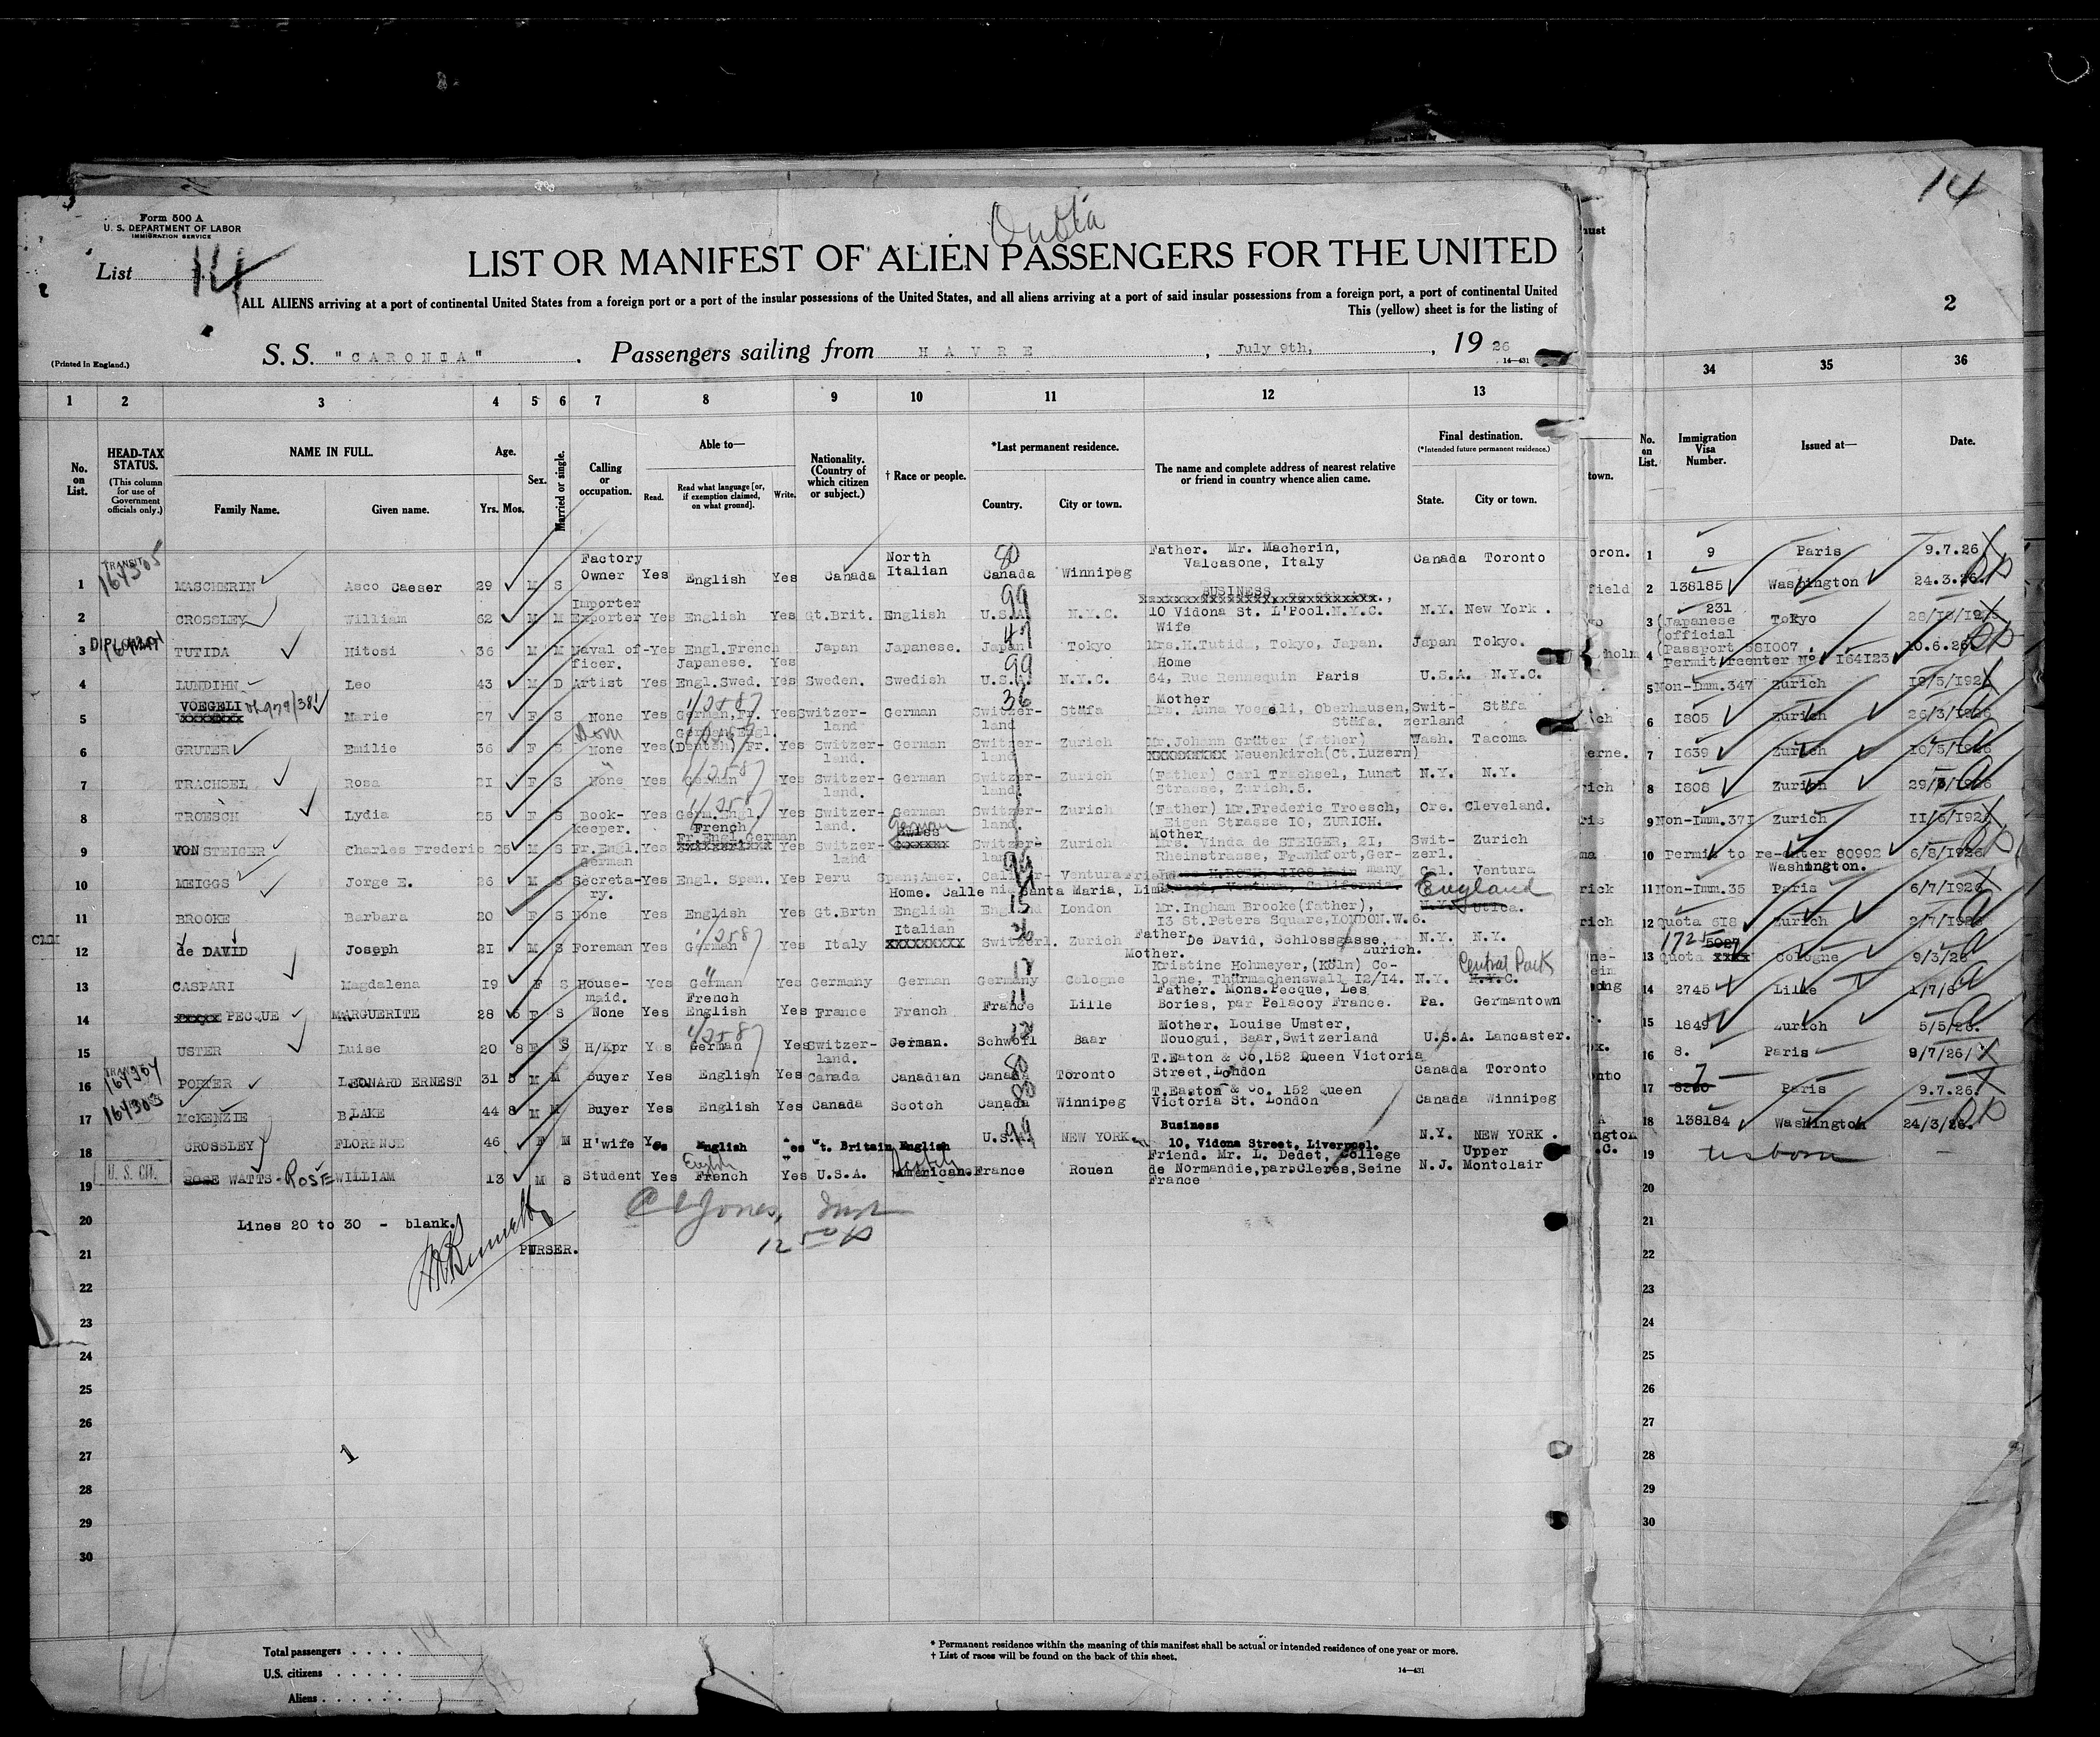 14
Form 500 A
U. S. DEPARTMENT OF LABOR
IMMIGRATION SERVICE
List 14
LIST OR MANIFEST OF ALIEN PASSENGERS FOR THE UNITED
ALL ALIENS arriving at a port of continental United States from a foreign port or a port of the insular possessions of the United States, and all aliens arriving at a port of said insular possessions from a foreign port, a port of continental United
This (yellow) sheet is for the listing of
2
(Printed in England.)
S. S. "CARONIA". Passengers sailing from HAVRE, July 9th, 1926
14—431
1 2 3 4 5 6 7 8 9 10 11 12 13 34 35 36
No. on List.
HEAD-TAX STATUS.
(This column for use of Government officials only.)
NAME IN FULL.
Family Name. Given name.
Age.
Yrs. Mos.
Sex.
Married or single.
Calling or occupation.
Able to—
Read. Read what language [or, if exemption claimed, on what ground]. Write.
Nationality. (Country of which citizen or subject.)
† Race or people.
*Last permanent residence.
Country. City or town.
The name and complete address of nearest relative or friend in country whence alien came.
Final destination.
(*Intended future permanent residence.)
State. City or town.
No. on List.
Immigration Visa Number.
Issued at—
Date.
1 TRANSIT 164305 MASCHERIN Asco Caeser 29 M S Factory Owner Yes English Yes Canada North Italian Canada Winnipeg Father. Mr. Macherin, Valcasone, Italy Canada Toronto 1 9 Paris 9.7.26
2 CROSSLEY William 62 M M Importer Exporter Yes English Yes Gt.Brit. English U.S.A. N.Y.C. BUSINESS 10 Vidona St. L'Pool. N.Y.C. N.Y. New York. 2 138185 Washington 24.3.26.
3 DIPLOMAT TUTIDA Hitosi 36 M M Naval officer. Yes Engl.French Japanese. Yes Japan Japanese. Japan Tokyo Wife Mrs.H.Tutida, Tokyo, Japan. Japan Tokyo. 3 231 (Japanese official Passport 581007 Tokyo
4 LUNDIHN Leo 43 M D Artist Yes Engl.Swed. Yes Sweden. Swedish U.S.A. N.Y.C. Home 64, Rue Rennequin Paris U.S.A. N.Y.C. 4 Permit reenter No. 164123 10.6.26.
5 VOEGELI Marie 27 F S None Yes German,Fr. Yes Switzerland German Switzerland Stäfa Mother Mrs. Anna Voegeli, Oberhausen, Stäfa. Switzerland Stäfa 5 Non-Imm.347 Zurich
6 GRUTER Emilie 36 F S None Yes German,Engl. (Deutsh) Fr. Yes Switzerland. German Switzerland Zurich Mr.Johann Grüter (father) Neuenkirch(Ct.Luzern) Wash. Tacoma 6 1805 Zurich 26/3/1926
7 TRACHSEL Rosa 21 F S None Yes German Yes Switzerland. German Switzerland. Zurich (Father) Carl Trachsel, Lunat Strasse, Zurich.6. N.Y. N.Y. 7 1639 Zurich 10/5/1926
8 TROESCH Lydia 25 F S Bookkeeper. Yes Germ.Engl. French Yes Switzerland. German Switzerland. Zurich (Father) Mr.Frederic Troesch, Eigen Strasse 10, ZURICH. Ore. Cleveland. 8 1808 Zurich
9 VON STEIGER Charles Frederic 25 M S Fr.Engl. German Yes Fr.Engl.German Yes Switzerland German Switzerland Zurich Mother Mrs. Vinda de STEIGER, 21, Rheinstrasse, Frankfort,Germany Switzerl. Zurich 9 Non-Imm.371 Zurich
10 MEIGGS Jorge E. 26 M S Secretary. Yes Engl. Span. Yes Peru Span;Amer. California Ventura Home. Calle Santa Maria, Lima. Cal. Ventura 10 Permit to re-enter 80992 Washington. 6/8/1926
11 BROOKE Barbara 20 F S None Yes English Yes Gt.Brtn English England London Mr.Ingham Brooke(father), 13 St.Peters Square,LONDON.W.6. England 11 Non-Imm.35 Paris
12 de DAVID Joseph 21 M S Foreman Yes German Yes Italy Italian Switzerl. Zurich Father De David, Schlossgasse, Zurich. N.Y. N.Y. 12 Quota 618 Zurich 2/7/1926
13 CASPARI Magdalena 19 F S Housemaid. Yes German Yes Germany German Germany Cologne Mother. Kristine Hohmeyer,(Köln) Cologne, Thürmachenswall 12/14. N.Y. Central Park 13 Quota 1725 Cologne 9/3/26
14 PECQUE MARGUERITE 28 6 F S None Yes French English Yes France Franch France Lille Father. Mons.Pecque, Les Bories, par Pelacoy France. Pa. Germantown 14 2745 Lille 1/7/6
15 USTER Luise 20 8 F S H/Kpr Yes German Yes Switzerland. German. Baar Mother. Louise Umster, Nouogui, Baar,Switzerland U.S.A. Lancaster. 15 1849 Zurich 5/5/26.
16 164304 PORTER LEONARD ERNEST 31 M M Buyer Yes English Yes Canada Canadian Canada Toronto T.Eaton & Co,152 Queen Victoria Street, London Canada Toronto 16 8. Paris 9/7/26
17 164303 McKENZIE BLAKE 44 8 M M Buyer Yes English Yes Canada Scotch Canada Winnipeg T.Easton & Co. 152 Queen Victoria St. London Canada Winnipeg 17 7 Paris 9.7.26.
18 CROSSLEY FLORENCE 46 F M H'wife Yes English Yes Gt. Britain English U.S.A. NEW YORK Business 10. Vidona Street, Liverpool. N.Y. NEW YORK. 18 138184 Washington 24/3/26.
19 U. S. CIT. WATTS-ROSE WILLIAM 13 M S Student Yes English French Yes U.S.A. American. France Rouen Friend. Mr. L. Dedet, College de Normandie,par Cleres,Seine France N.J. Upper Montclair 19
20 Lines 20 to 30 - blank. 20
21 PURSER. 21
22 22
23 23
24 24
25 25
26 26
27 27
28 28
29 29
30 30
Total passengers
U.S. citizens
Aliens
* Permanent residence within the meaning of this manifest shall be actual or intended residence of one year or more.
† List of races will be found on the back of this sheet.
14—431